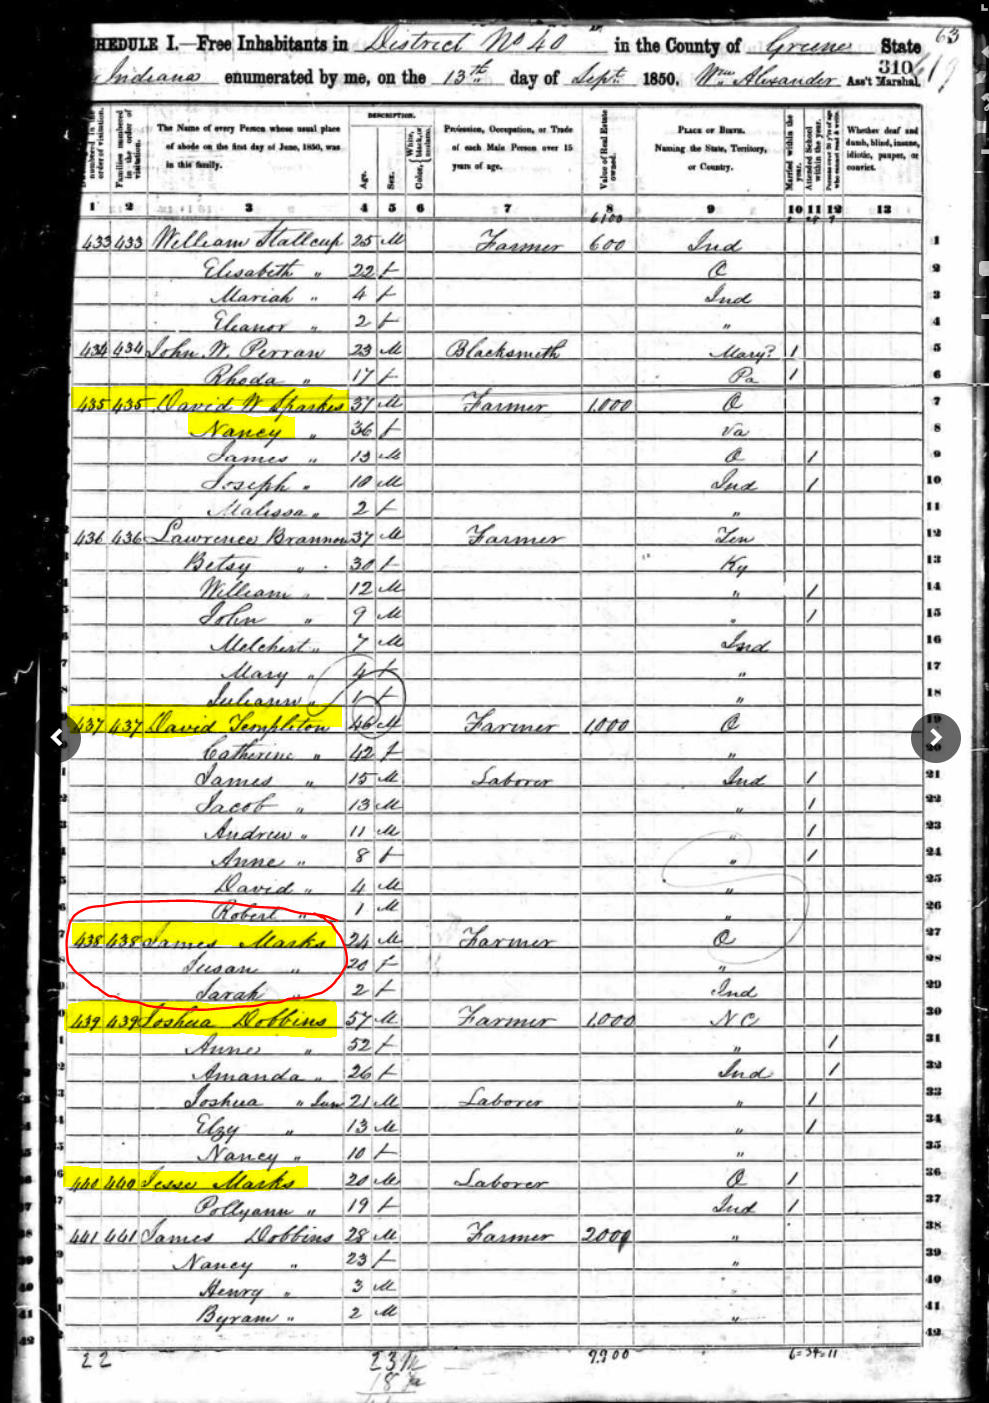 63
HEDULE I.—Free Inhabitants in District No 40 in the County of Greene State
310 619
Indiana enumerated by me, on the 13th day of Sept 1850. Wm Alexander Ass't Marshal.
numbered in the order of visitation.
Families numbered in the order of visitation.
The Name of every Person whose usual place of abode on the first day of June, 1850, was in this family.
DESCRIPTION.
Age.
Sex.
Color, White, black, or mulatto.
Profession, Occupation, or Trade of each Male Person over 15 years of age.
Value of Real Estate owned.
PLACE OF BIRTH. Naming the State, Territory, or Country.
Married within the year.
Attended School within the year.
Whether deaf and dumb, blind, insane, idiotic, pauper, or convict.
1 2 3 4 5 6 7 8 9 10 11 12 13
6100
433 433 William Stallcup 25 M Farmer 600 Ind 1
Elisabeth " 22 f O 2
Mariah " 4 f Ind 3
Eleanor " 2 f " 4
434 434 John W. Perran 23 M Blacksmith Mary? 1 5
Rhoda " 17 f Pa 1 6
435 435 David W Sparkes 37 M Farmer 1,000 O 7
Nancy " 36 f Va 8
James " 13 M O 1 9
Joseph " 10 M Ind 1 10
Malissa " 2 f " 11
436 436 Lawrence Brannon 37 M Farmer Ten 12
Betsy " 30 f Ky 13
William " 12 M " 1 14
John " 9 M " 1 15
Melchert " 7 M Ind 16
Mary " 4 f " 17
Juliann " 1 f " 18
437 437 David Templeton 46 M Farmer 1,000 O 19
Catherine " 42 f " 20
James " 15 M Laborer Ind 1 21
Jacob " 13 M " 1 22
Andrew " 11 M " 1 23
Anne " 8 f " 1 24
David " 4 M " 25
Robert " 1 M " 26
438 438 James Marks 24 M Farmer O 27
Susan " 20 f " 28
Sarah " 2 f Ind 29
439 439 Joshua Dobbins 57 M Farmer 1,000 N C 30
Anne " 52 f " 1 31
Amanda " 26 f Ind 1 32
Joshua " Jun 21 M Laborer " 1 33
Elzy " 13 M " 1 34
Nancy " 10 f " 35
440 440 Jesse Marks 20 M Laborer O 1 36
Pollyann " 19 f Ind 1 37
441 441 James Dobbins 28 M Farmer 2000 " 38
Nancy " 23 f " 39
Henry " 3 M " 40
Byram " 2 M " 41
42
22 23 M 9,900
18